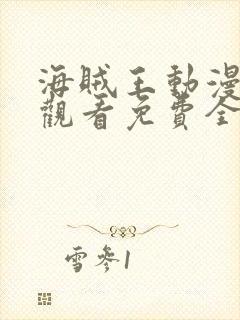 海賊王動漫
觀看免費全
雪參1